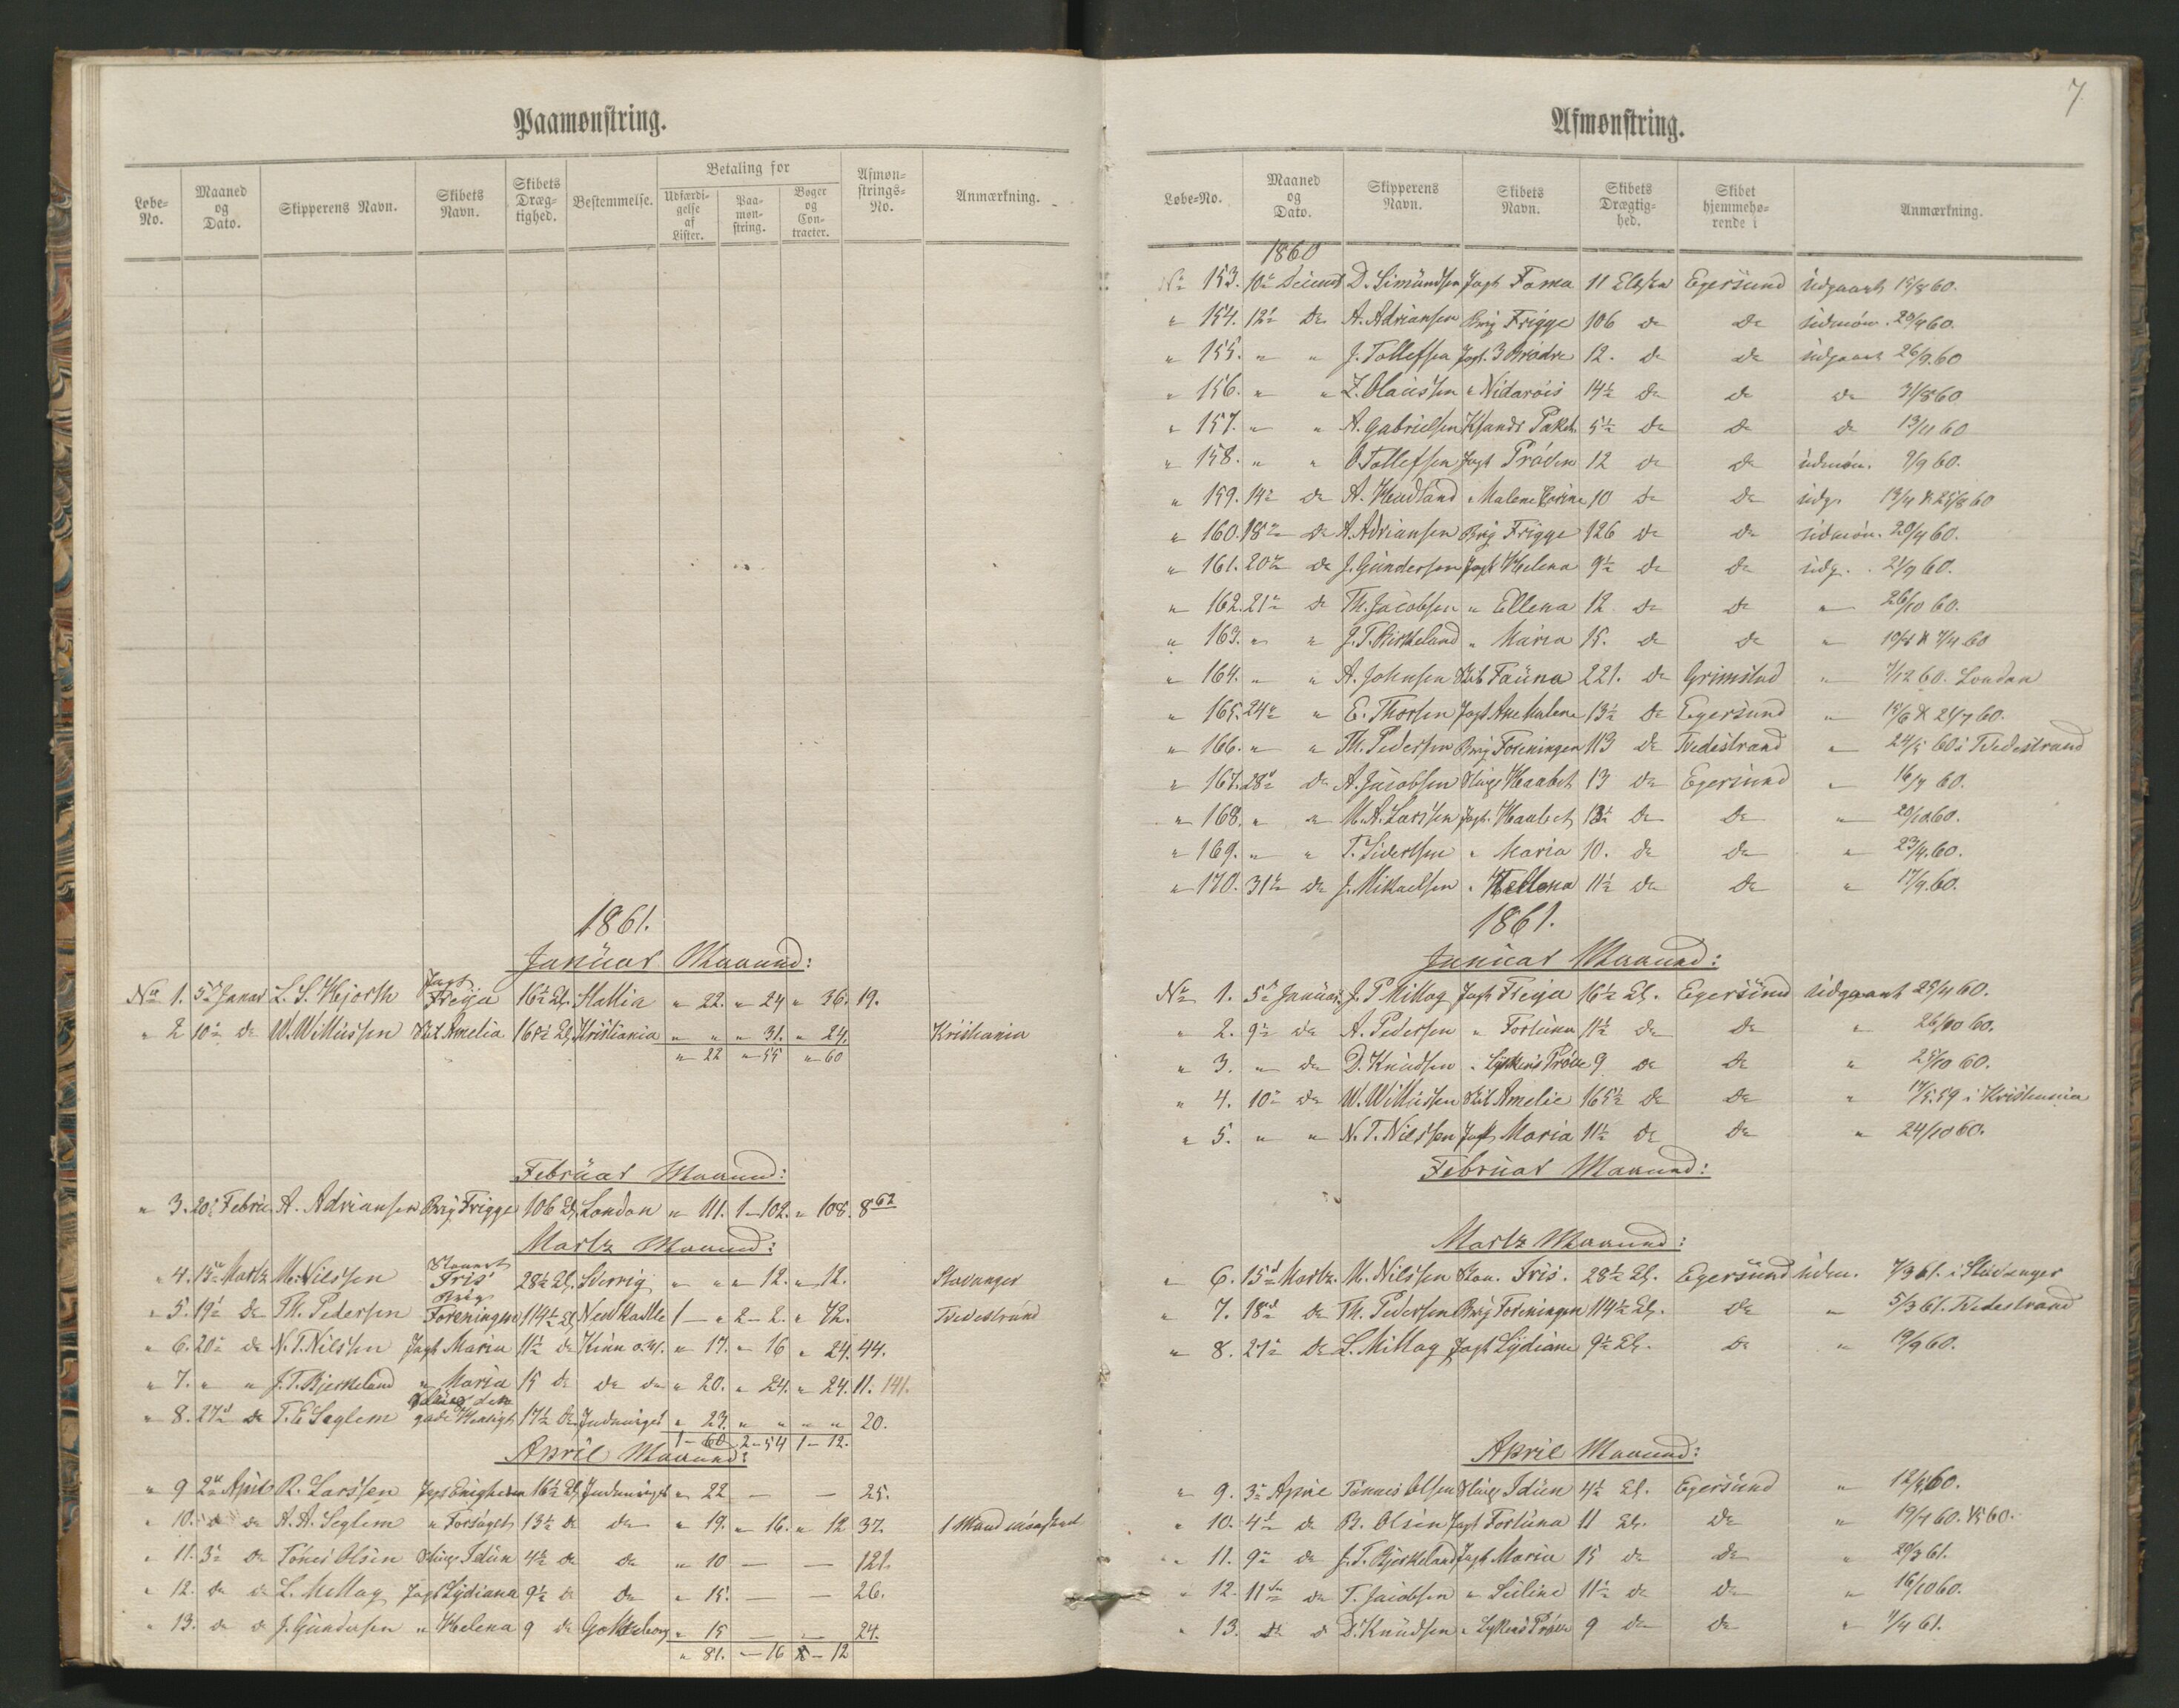 Paamønstring.
Løbe-No. Maaned og Dato. Skipperens Navn. Skibets Navn. Skibets Dræg-tighed. Bestemmelse. Betaling for Udfærdi-gelse af Lister. Paa-møn-string. Bøger og Con-tracter. Afmøn-strings-No. Anmærkning.
1861.
Januar Maaned:
No 1. 5te Januar L. S. Hjorth Jagt Freija 16½ Cl. Hattia " 22. " 24 " 36. 19.
" 2 10de do W. Willüssen Skib Amelia 165½ Cl. Kristiania " " " 31. " 24. Kristiania
" 22 " 55 " 60
Februar Maaned:
" 3. 20de Febru. A. Adriansen Brig Frigge 106 Cl. London " 111. 1-102. " 108. 8 62
Martz Maaned:
" 4. 15de Martz M. Nilssen Iris 28½ Cl. Sverrig " " " 12. " 12. Stavanger
" 5. 19de do Th. Pedersen Brig Foreningen 114½ Cl. New Kastle 1 - " 2 - 2. " 72. Tvedestrand
" 6. 20de do N. T. Nilssen Jagt Maria 11½ do Kinn " 17. " 16 " 24. 44.
" 7. " " J. T. Bjerkeland " Maria 15 do do do " 20. " 24. " 24. 11. 141.
" 8. 27de do T. E. Seglem 17½ do " 23. " " " " 20.
1 - 60 2 - 54 1 - 12.
April Maaned:
" 9 2den April R. Larssen Jagt Enigheden 16½ Cl. " 22 — — 25.
" 10. do do A. A. Seglem " Forsøget 13½ do do " 19. " 16. " 12 37. 1 Mand
" 11. 3de do Tönes Olsen Idun 4½ do do " 10 — — 121.
" 12. do do L. Mitlag Jagt Lydiana 9½ do do " 15. — — 26.
" 13. do do J. Gundersen " Helena 9 do Gottenborg " 15 — — 24.
" 81. — 16 — 12
7
Afmønstring.
Løbe-No. Maaned og Dato. Skipperens Navn. Skibets Navn. Skibets Drægtig-hed. Skibet hjemmehø-rende i Anmærkning.
1860
No 153. 10de Decemb D. Simundsen Jagt Fama 11 Egersund udgaaet 15/8 60.
" 154. 12te do A. Adriansen Brig Frigge 106 do do udmön. 20/4 60.
" 155. " " J. Tollefsen Jagt 3 Brödre 12. do do udgaaet 26/9.60
" 156. " " Z. Olaussen " Nidarois 14½ do do do 31/8 60
" 157. " " A. Gabrielsen Ksands Paket 5½ do do do 13/11 60
" 158. " " O. Tollefsen Jagt Pröven 12 do do udmön. 9/9 60.
" 159. 14de do A. Hadland " Malene Corine 10 do do udg. 13/4 & 25/8 60
" 160. 18de do A. Adriansen Brig Frigge 126 do do udmön. 20/4 60.
" 161. 20de do J. Gundersen Jagt Helena 9½ do do udg. 21/9 60.
" 162. 21de do Th. Jacobsen " Ellena 12 do do " 26/10 60.
" 163. " " J. T. Birkeland " Maria 15. do do " 60
" 164. " " A. Johnsen Skib Fauna 221. do Grimstad " 7/12 60. London
" 165. 24de " E. Thorsen Jagt Ane Malene 13½ do Egersund " 15/6 & 21/7 60.
" 166. " " Th. Pedersen Brig Foreningen 113 do Tvedestrand " 24/5 60 i Tvedestrand
" 167. 28de do A. Jacobsen Haabet 13 do Egersund " 16/7 60.
" 168. " " M. A. Larssen Jagt Haabet 13½ do do " 20/10 60.
" 169. " " T. Sivertsen " Maria 10. do do " 23/4.60.
" 170. 31te do J. Mikaelsen " Hellena 11½ do do " 17/9.60.
1861.
Januar Maaned:
No 1. 5te Januar J. P. Mitlag Jagt Freija 16½ Cl. Egersund udgaaet 25/4 60.
" 2. 9de do A. Pedersen " Fortuna 11½ do do " 26/10 60.
" 3. " do D. Knudsen " Lykkens Pröve 9 do do " 25/10 60.
" 4. 10de do W. Willüssen Skib Amelie 165½ do do " 17/5.59 i Kristiania
" 5. " " N. T. Nilssen Jagt Maria 11½ do do " 24/10 60.
Februar Maaned:
Martz Maaned:
" 6. 15de Martz. M. Nilssen Iris. 28½ Cl. Egersund udm. 7/3 61. i Stavanger
" 7. 18de do Th. Pedersen Brig Foreningen 114½ Cl. do " 5/3 61. Tvedestrand
" 8. 27de do L. Mitlag Jagt Lydiane 9½ Cl. do " 19/9 60.
April Maaned:
" 9. 3de April Tönnes Olsen Idun 4½ Cl. Egersund " 12/4 60.
" 10. 4de do B. Olsen Jagt Fortuna 11 Cl. do " 19/4 60.
" 11. 9de do J. T. Bjerkeland Jagt Maria 15 do do " 20/3 61.
" 12. 11te do T. Jacobsen " Seline 11½ do do " 16/10 60.
" 13. do do D. Knudsen " Lykkens Pröve 9 do do " 1/4 61.